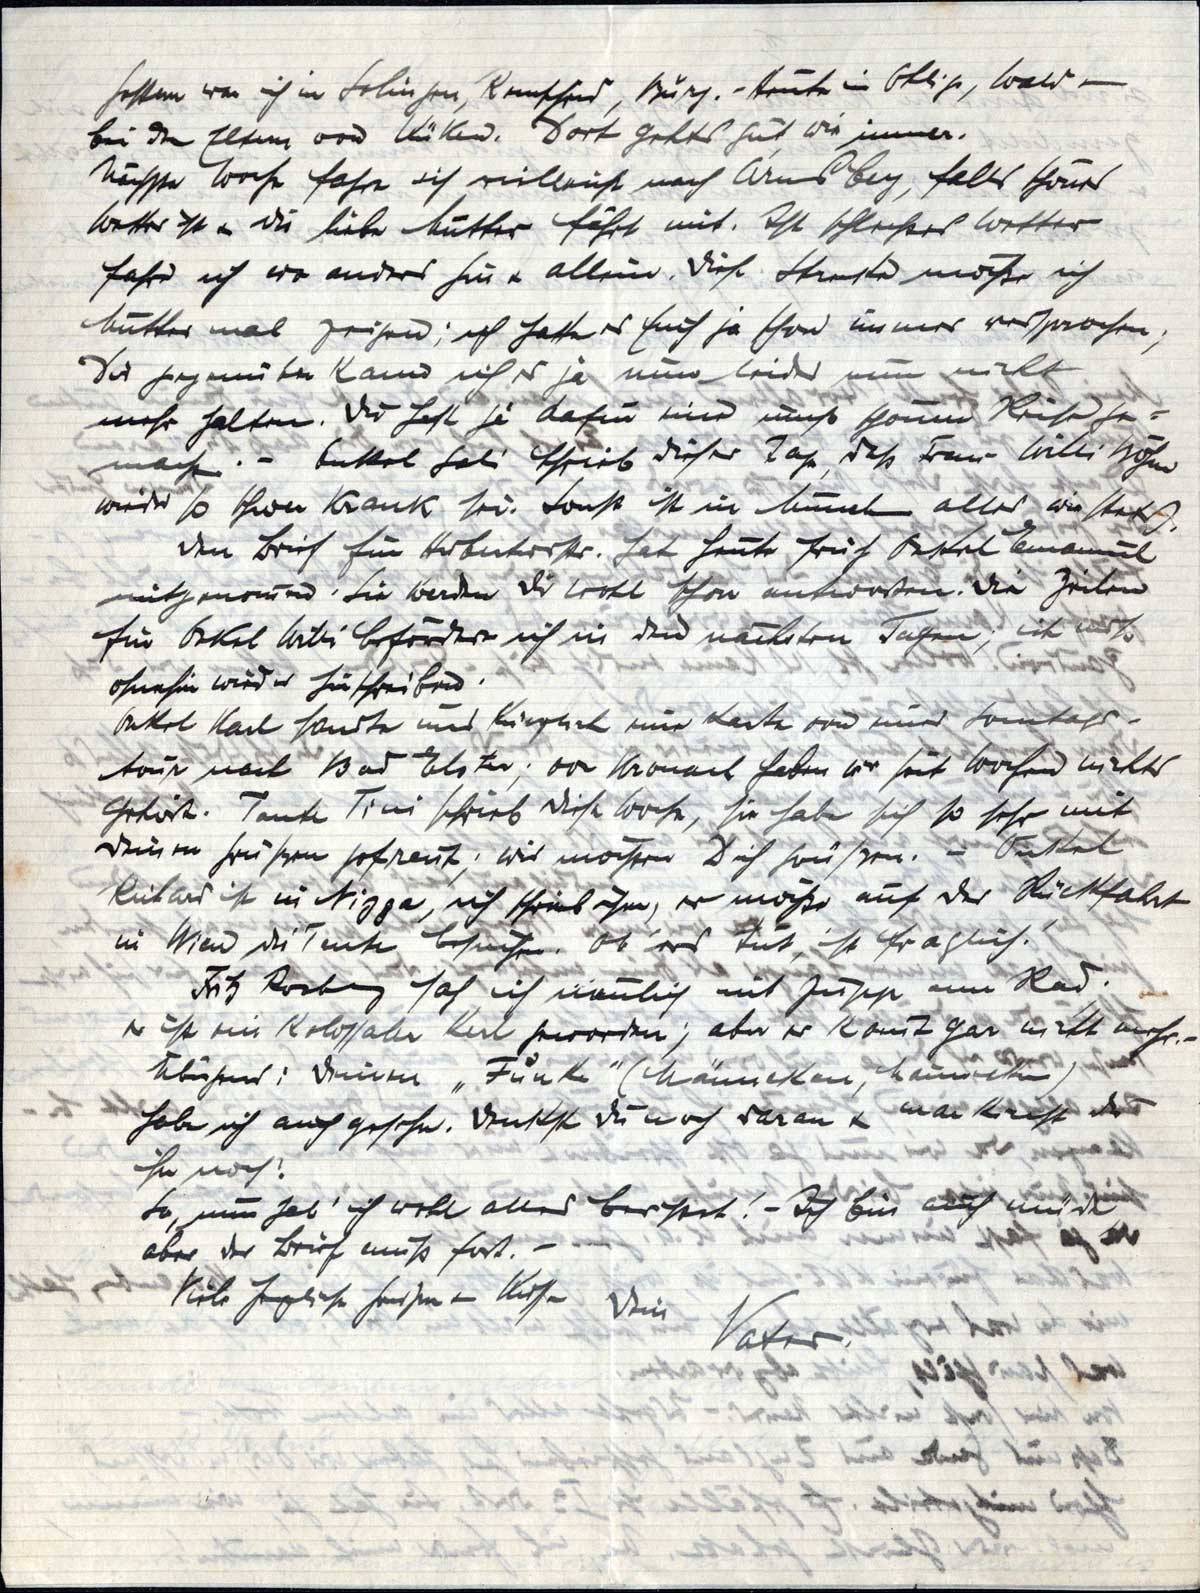 Gestern war ich in Solingen, Remscheid, Burg. - Heute in Ohligs, Wald &
bei den Eltern von Küken. Dort gehts gut, wie immer.
Nächste Woche fahre ich vielleicht nach Arnsberg, falls schönes
Wetter ist & die liebe Mutter fährt mit. Ist schlechtes Wetter
fahre ich wo anders hin & allein. Diese Strecke möchte ich
Mutter mal zeigen; ich hatte es Euch ja schon immer versprochen;
Dir gegenüber kann ich es ja nun leider nun nicht
mehr halten. Du hast ja dafür eine schöne Reise ge=
macht. - Onkel schrieb dieser Tage, dass Frau Willi Böhm
wieder so schwer krank sei. Sonst ist in alles wie stets.
Den Brief für hat heute früh Onkel Emanuel
mitgenommen. Sie werden Dir wohl schon antworten. Die Zeilen
für Onkel Willi befördere ich in den nächsten Tagen; ich muß
ohnehin wieder hinschreiben.
Onkel Karl sandte uns kürzlich eine Karte von einer Sonntags-
tour nach Bad Elster; von Kronach haben wir seit Wochen nichts
gehört. Tante Tini schrieb diese Woche, sie habe sich so sehr mit
Deinen Grüßen gefreut; wir möchten Dich grüßen. - Onkel
Richard ist in Nizza, ich schrieb ihm, er möchte auf der Rückfahrt
in Wien die Tante besuchen. Ob ers tut, ist fraglich!
Fritz sah ich neulich mit am Rad.
er ist ein kolossaler Kerl geworden; aber er kennt gar nicht mehr. -
Übrigens: Deinen „Funke" (Männeken, Männeken)
habe ich auch gesehn. Denkst Du noch daran & Du
ihn noch?
So, nun hab' ich wohl alles berichtet! - Ich bin auch müde
aber der Brief muß fort. -
Viele herzliche Grüße & Küsse Dein
Vater.